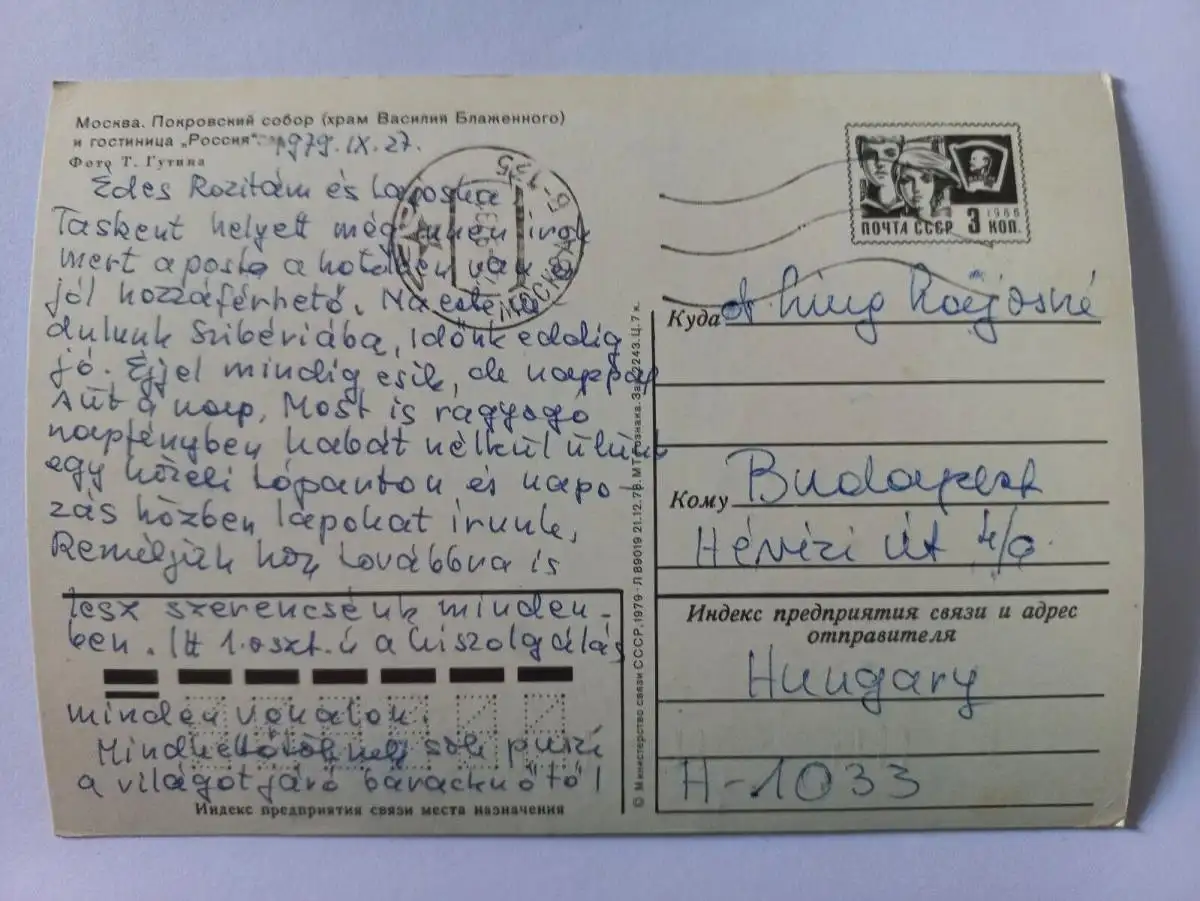 Москва. Покровский собор (храм Василия Блаженного)
и гостиница „Россия"
1979.IX.27.
Фото Т. Гутина
Édes Rozitám és
Taskent helyett még innen írok
mert a posta a hotelben van és
jól hozzáférhető. Ma este in
dulunk Szibériába, időnk eddig
jó. Éjjel mindig esik, de nappal
süt a nap. Most is ragyogó
napfényben kabát nélkül ülünk
egy közeli lóparton és napo-
zás közben lapokat írunk,
Reméljük hogy továbbra is
lesz szerencsénk minden-
ben. Itt 1. oszt. ú a kiszolgálás
minden vonalon.
sok puszi
a világot járó baracknőtől
Индекс предприятия связи места назначения
© Министерство связи СССР, 1979
Л 89019 21.12.78. МТ Гознака. Зак. 2243. Ц. 7 к.
МОСКВА
1966
ПОЧТА СССР 3 КОП.
Куда
Budapest
Кому
Hévizi út 4/a.
Индекс предприятия связи и адрес
отправителя
Hungary
H-1033